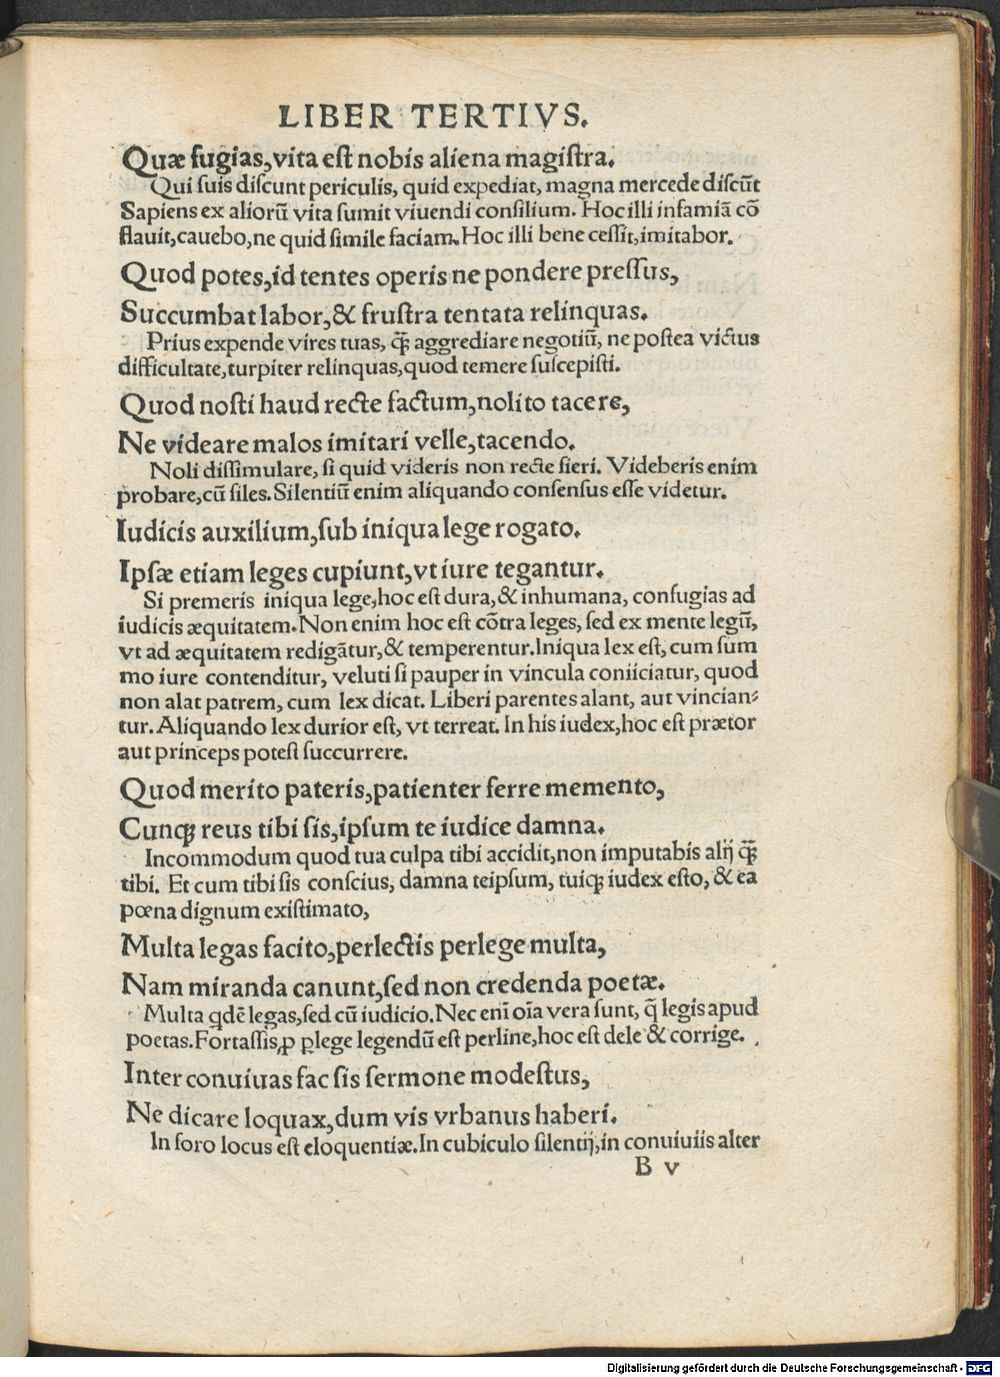 LIBER TERTIVS.
Quæ fugias,vita est nobis aliena magistra.
Qui suis discunt periculis, quid expediat, magna mercede discūt
Sapiens ex aliorū vita sumit viuendi consilium. Hoc illi infamiā cō
flauit,cauebo,ne quid simile faciam.Hoc illi bene cessit,imitabor.
Quod potes,id tentes operis ne pondere pressus,
Succumbat labor,& frustra tentata relinquas.
Prius expende vires tuas, q̄ꝫ aggrediare negotiū, ne postea victus
difficultate,turpiter relinquas,quod temere suscepisti.
Quod nosti haud recte factum,nolito tacere,
Ne videare malos imitari velle,tacendo.
Noli dissimulare, si quid videris non recte fieri. Videberis enim
probare,cū siles.Silentiū enim aliquando consensus esse videtur.
Iudicis auxilium,sub iniqua lege rogato.
Ipsæ etiam leges cupiunt,vt iure tegantur.
Si premeris iniqua lege,hoc est dura,& inhumana, confugias ad
iudicis æquitatem.Non enim hoc est cōtra leges, sed ex mente legū,
vt ad æquitatem redigātur,& temperentur.Iniqua lex est, cum sum
mo iure contenditur, veluti si pauper in vincula coniiciatur, quod
non alat patrem, cum lex dicat. Liberi parentes alant, aut vincian⸗
tur.Aliquando lex durior est, vt terreat. In his iudex,hoc est prætor
aut princeps potest succurrere.
Quod merito pateris,patienter ferre memento,
Cunqꝫ reus tibi sis,ipsum te iudice damna.
Incommodum quod tua culpa tibi accidit,non imputabis alij q̄ꝫ
tibi. Et cum tibi sis conscius, damna teipsum, tuiqꝫ iudex esto, & ea
pœna dignum existimato,
Multa legas facito,perlectis perlege multa,
Nam miranda canunt,sed non credenda poetæ.
Multa qdē legas,sed cū iudicio.Nec enī oīa vera sunt, q̄ legis apud
poetas.Fortassis,ꝓ ꝑlege legendū est perline,hoc est dele & corrige.
Inter conuiuas fac sis sermone modestus,
Ne dicare loquax,dum vis vrbanus haberi.
In foro locus est eloquentiæ.In cubiculo silentij,in conuiuiis alter
B v
Digitalisierung gefördert durch die Deutsche Forschungsgemeinschaft - DFG